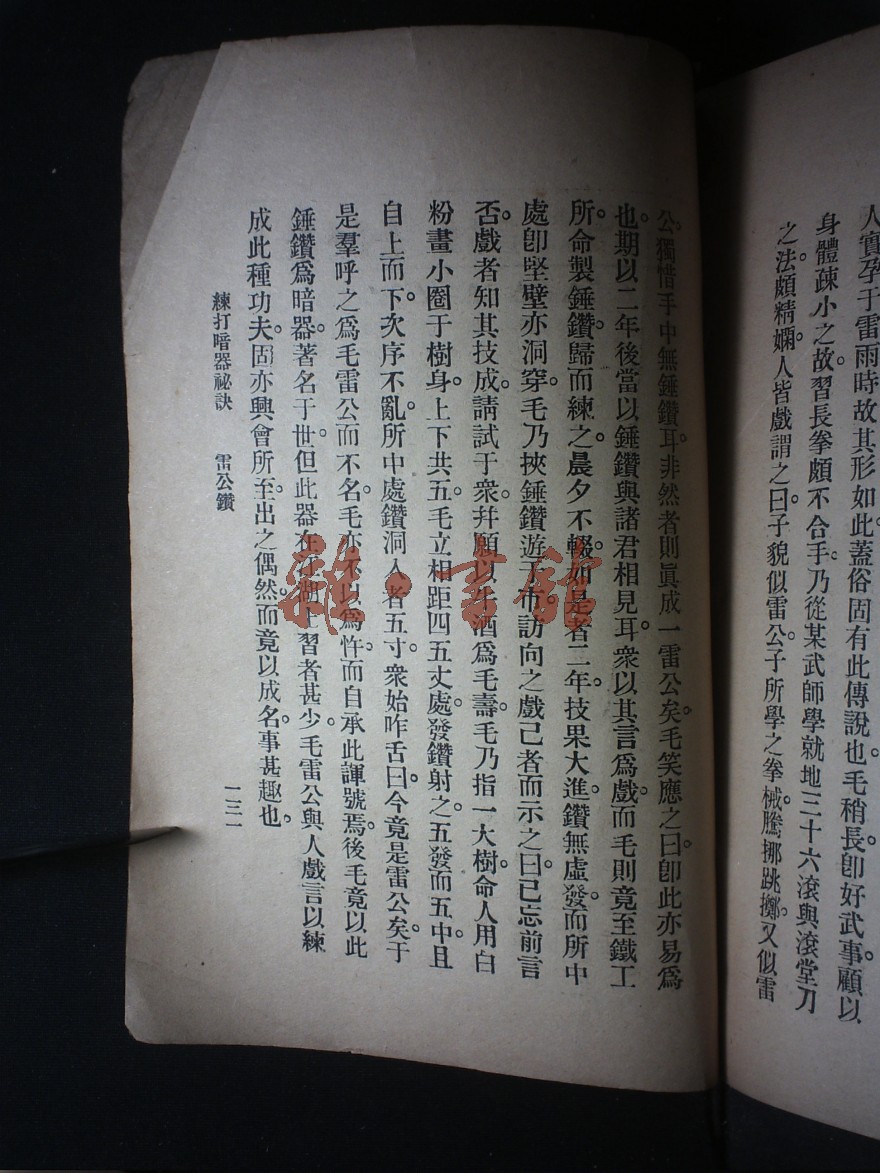 人實孕于雷雨時故其形如此。蓋俗固有此傳說也。毛稍長。卽好武事。顧以
身體疎小之故。習長拳頗不合手。乃從某武師學就地三十六滾與滾堂刀
之法。頗精嫻。人皆戲謂之曰。子貌似雷公。子所學之拳械。騰挪跳擲。又似雷
公。獨惜手中無錘鑽耳。非然者則眞成一雷公矣。毛笑應之曰。卽此亦易爲
也。期以二年後當以錘鑽與諸君相見耳。衆以其言爲戲。而毛則竟至鐵工
所。命製錘鑽。歸而練之。晨夕不輟。如是者二年。技果大進。鑽無虛發。而所中
處。卽堅壁亦洞穿。毛乃挾錘鑽遊于市。訪向之戲己者而示之曰。已忘前言
否。戲者知其技成。請試于衆。幷願以牛酒爲毛壽。毛乃指一大樹。命人用白
粉畫小圈于樹身。上下共五。毛立相距四五丈處。發鑽射之。五發而五中。且
自上而下。次序不亂。所中處鑽洞入者五寸。衆始咋舌曰。今竟是雷公矣。于
是羣呼之爲毛雷公而不名。毛亦不以爲忤。而自承此諢號焉。後毛竟以此
錘鑽爲暗器。著名于世。但此器在江湖上習者甚少。毛雷公與人戲言以練
成此種功夫。固亦興會所至。出之偶然。而竟以成名。事甚趣也。
練打暗器祕訣 雷公鑽
一三一
雜·書館